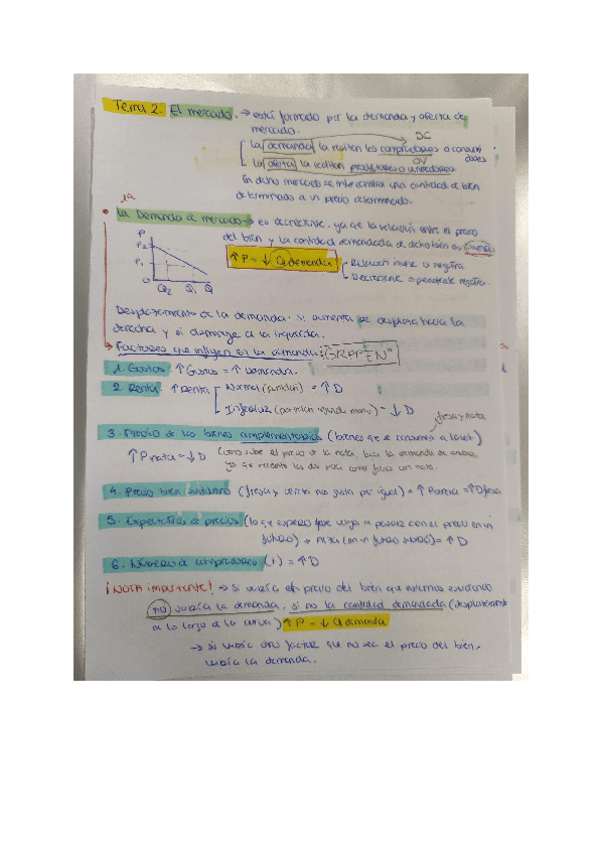 Tema 2. El mercado. → está formado por la demanda y oferta de
mercado.
DC
La demanda la realizan los compradores o consumidores
OV
La oferta la realizan productores o vendedores
En dicho mercado se intercambia una cantidad de bien
determinado a un precio determinado.
La Demanda de mercado → es decreciente, ya que la relación entre el precio
del bien y la cantidad demandada de dicho bien es inversa
P
P2
P1
0
Q2 Q1 Q
↑P = ↓ Q demanda
Relación inversa o negativa
Decreciente o pendiente negativa.
Desplazamiento de la demanda. si aumenta se desplaza hacia la
derecha y si disminuye a la izquierda.
→ Factores que influyen en la demanda: GRPPEN
1. Gustos. ↑ Gustos = ↑ Demanda.
2. Renta. ↑ Renta
Normal = ↑ D
Inferior = ↓ D
fresa y nata
3. Precio de los bienes complementarios (bienes que se consumen a la vez)
↑ P nata = ↓ D (como sube el precio de la nata, baja la demanda de ambas,
4. Precio bien sustitutivo
5. Expectativas de precios
futuro)
6. Número de compradores (+) = ↑ D
¡NOTA importante! → Si varía el precio del bien que estamos estudiando
no varía la demanda, si no la cantidad demandada (desplazamiento
a lo largo de la curva) ↑ P = ↓ Q demanda
→ si varía otro factor que no sea el precio del bien,
varía la demanda.